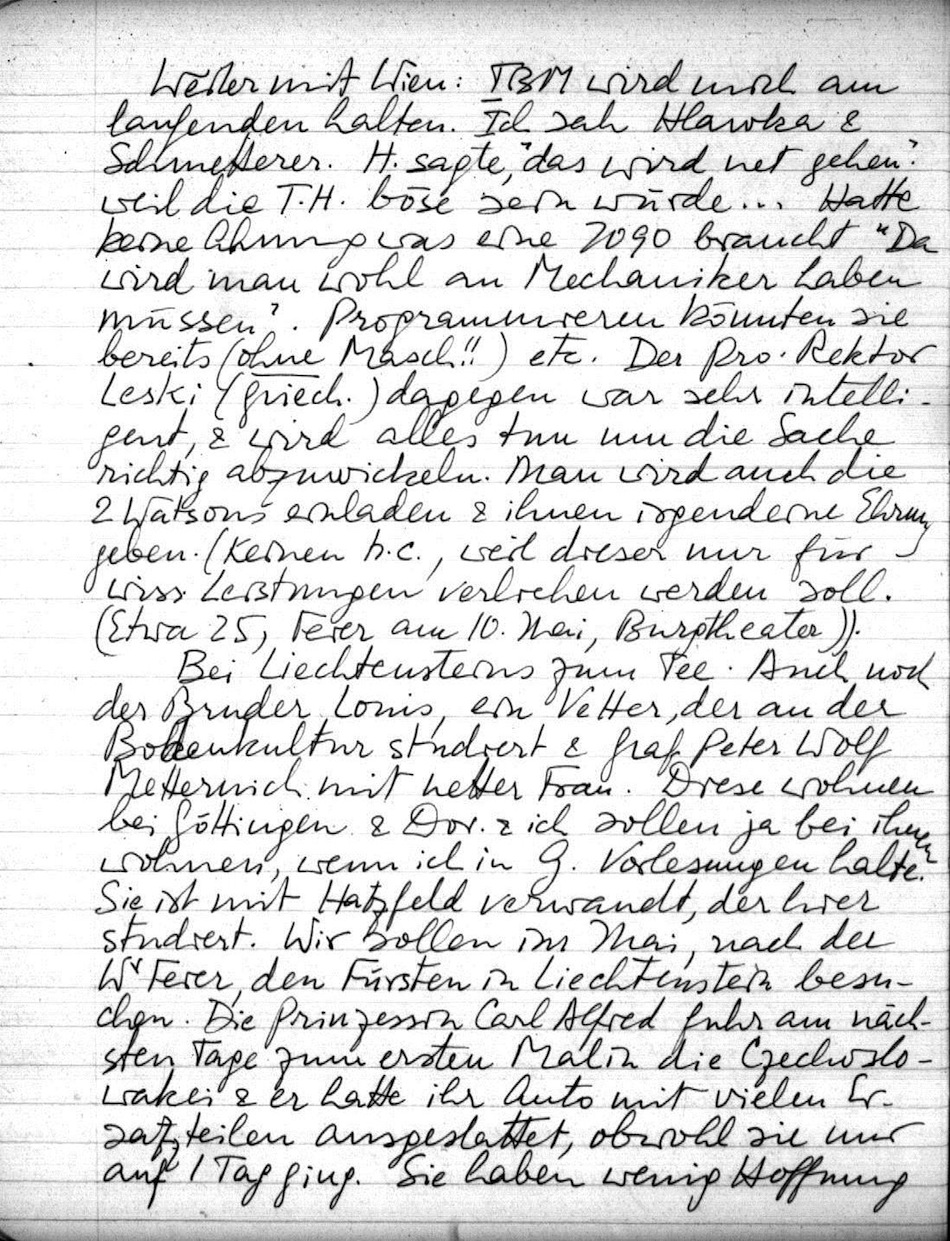 Weiter mit Wien: IBM wird mich am
laufenden halten. Ich sah Hlawka &
Schmetterer. H. sagte, "das wird net gehen".
weil die T.H. böse sein würde... Hatte
keine Ahnung was eine 7090 braucht "Da
wird man wohl an Mechaniker haben
müssen". Programmieren könnten sie
bereits (ohne Masch!!) etc. Der Pro. Rektor
Leski (griech.) dagegen war sehr intelli-
gent, & wird alles tun um die Sache
richtig abzuwickeln. Man wird auch die
2 Watsons einladen & ihnen irgendeine Ehrung
geben. (Keinen h.c., weil dieser nur für
wiss. Leistungen verliehen werden soll.
(Etwa 25, Feier am 10. Mai, Burgtheater)).
Bei Liechtensteins zum Tee. Auch noch
der Bruder Louis, ein Vetter, der an der
Bodenkultur studiert & Graf Peter Wolf
Metternich mit netter Frau. Diese wohnen
bei Göttingen & Dor. & ich sollen ja bei ihnen
wohnen, wenn ich in G. Vorlesungen halte.
Sie ist mit Hatzfeld verwandt, der hier
studiert. Wir sollen im Mai, nach der
W' Feier, den Fürsten in Liechtenstein besu-
chen. Die Prinzessin Carl Alfred fuhr am näch-
sten Tage zum ersten Mal in die Czechoslo-
wakei & er hatte ihr Auto mit vielen Er-
satzteilen ausgestattet, obwohl sie nur
auf 1 Tag ging. Sie haben wenig Hoffnung